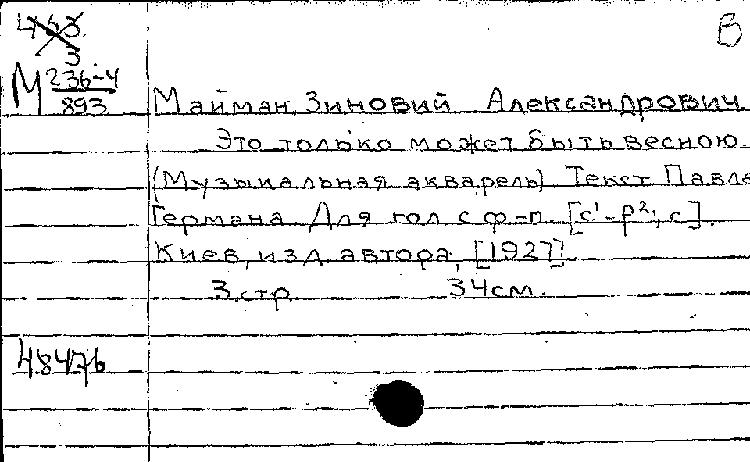 В
М 236-4
893
Майман, Зиновий Александрович
Это только может быть весною.
(Музыкальная акварель) Текст Павла
Германа. Для гол с ф-п. [c¹-f²; c].
Киев, изд. автора, [1927]
3 стр. 34 см.
48476